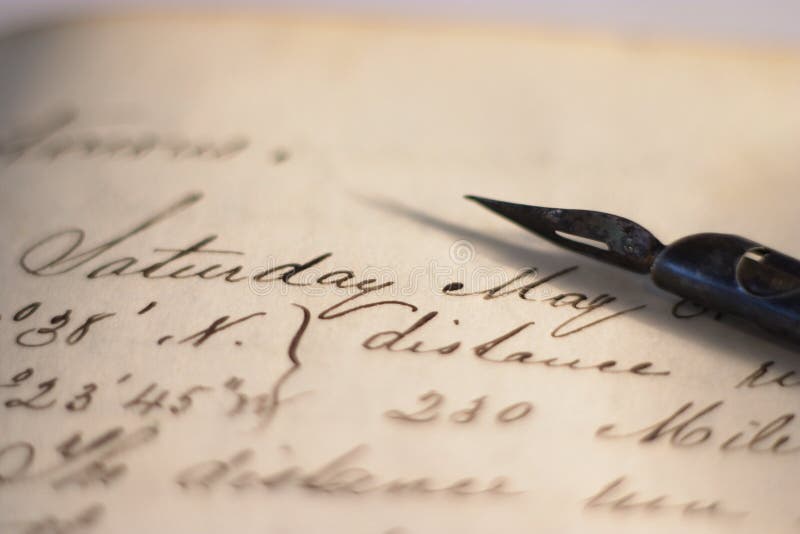 Saturday May
°38' N. } distance
°23'45" W } 230 Mile
The distance run